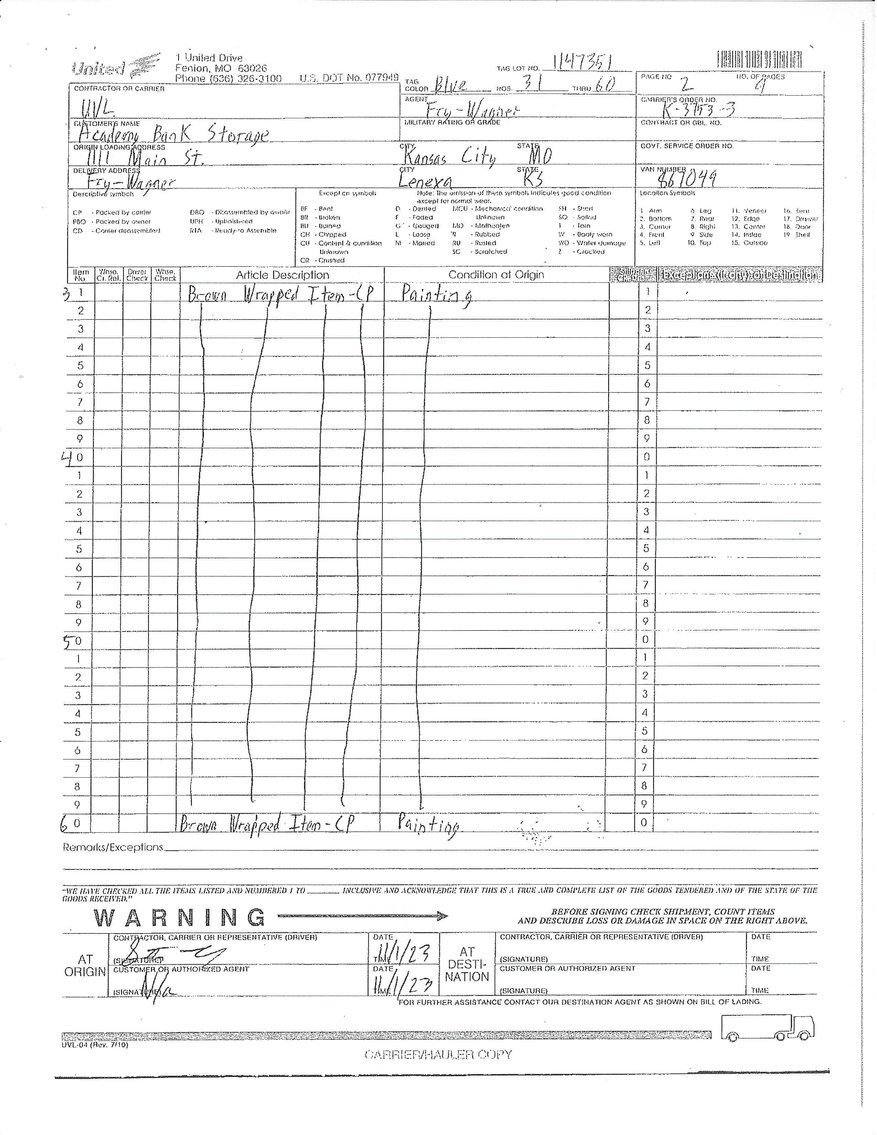 United
1 United Drive
Fenton, MO 63026
Phone (636) 326-3100 U.S. DOT No. 077949
TAG LOT NO. 1147351
TAG COLOR Blue NOS. 31 THRU 60
PAGE NO. 2 NO. OF PAGES 9
CONTRACTOR OR CARRIER
UVL
AGENT
Fry-Wagner
CARRIER'S ORDER NO.
K-3753-3
CUSTOMER'S NAME
Academy Bank Storage
MILITARY RATING OR GRADE
CONTRACT OR GBL. NO.
ORIGIN LOADING ADDRESS
1111 Main St.
CITY
Kansas City
STATE
MO
GOVT. SERVICE ORDER NO.
DELIVERY ADDRESS
Fry-Wagner
CITY
Lenexa
STATE
KS
VAN NUMBER
867049
Descriptive symbols
CP - Packed by carrier
PBO - Packed by owner
CD - Carrier disassembled
DBO - Disassembled by owner
UPH - Upholstered
RTA - Ready to Assemble
Exception symbols
Note: The omission of these symbols indicates good condition except for normal wear.
BE - Bent
BR - Broken
BU - Burned
CH - Chipped
CU - Content & condition Unknown
CR - Crushed
D - Dented
F - Faded
G - Gouged
L - Loose
M - Marred
MCU - Mechanical condition Unknown
MO - Motheaten
R - Rubbed
RU - Rusted
SC - Scratched
SH - Short
SO - Soiled
T - Torn
W - Badly worn
WD - Water damage
Z - Cracked
Location Symbols
1. Arm
2. Bottom
3. Corner
4. Front
5. Left
6. Leg
7. Rear
8. Right
9. Side
10. Top
11. Veneer
12. Edge
13. Center
14. Inside
15. Outside
16. Seat
17. Drawer
18. Door
19. Shelf
Item No. Whse. Ct. Rel. Driver Check Whse. Check Article Description Condition at Origin Exceptions (if any) at Destination
31 Brown Wrapped Item-CP Painting 1
2 2
3 3
4 4
5 5
6 6
7 7
8 8
9 9
40 0
1 1
2 2
3 3
4 4
5 5
6 6
7 7
8 8
9 9
50 0
1 1
2 2
3 3
4 4
5 5
6 6
7 7
8 8
9 9
60 Brown Wrapped Item-CP Painting 0
Remarks/Exceptions
"WE HAVE CHECKED ALL THE ITEMS LISTED AND NUMBERED 1 TO ______ INCLUSIVE AND ACKNOWLEDGE THAT THIS IS A TRUE AND COMPLETE LIST OF THE GOODS TENDERED AND OF THE STATE OF THE
GOODS RECEIVED."
WARNING
BEFORE SIGNING CHECK SHIPMENT, COUNT ITEMS
AND DESCRIBE LOSS OR DAMAGE IN SPACE ON THE RIGHT ABOVE.
AT ORIGIN
CONTRACTOR, CARRIER OR REPRESENTATIVE (DRIVER)
(SIGNATURE)
DATE
TIME
11/1/23
CUSTOMER OR AUTHORIZED AGENT
(SIGNATURE) N/a
DATE
TIME
11/1/23
AT DESTI-NATION
CONTRACTOR, CARRIER OR REPRESENTATIVE (DRIVER)
(SIGNATURE)
DATE
TIME
CUSTOMER OR AUTHORIZED AGENT
(SIGNATURE)
DATE
TIME
FOR FURTHER ASSISTANCE CONTACT OUR DESTINATION AGENT AS SHOWN ON BILL OF LADING.
UVL-04 (Rev. 7/10)
CARRIER/HAULER COPY